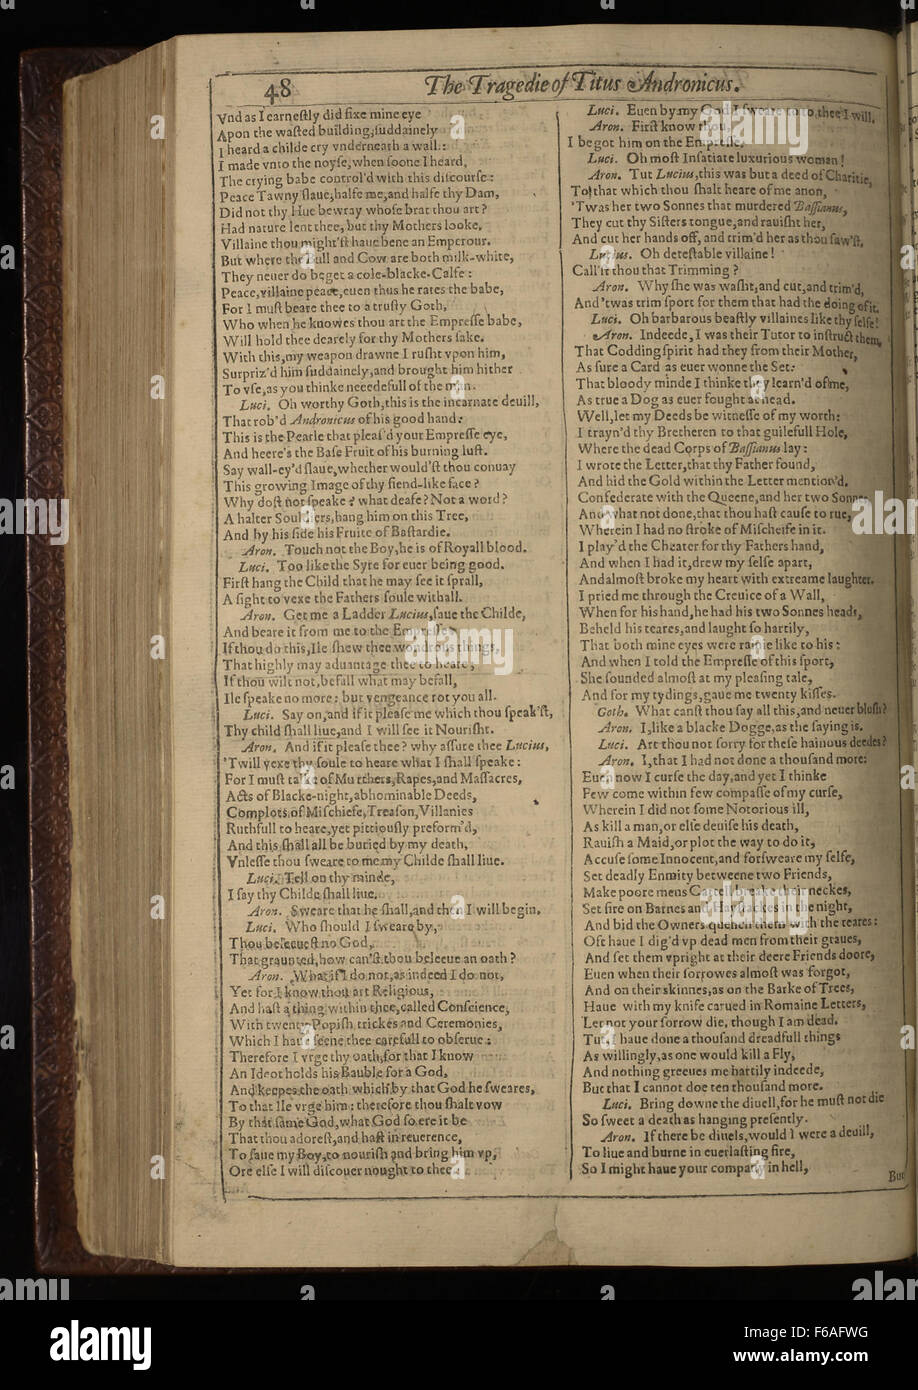 48
The Tragedie of Titus Andronicus.
Vnd as I earnestly did fixe mine eye
Apon the wasted building, suddainely
I heard a childe cry vnderneath a wall:
I made vnto the noyse, when soone I heard,
The crying babe control'd with this discourse:
Peace Tawny slaue, halfe me, and halfe thy Dam,
Did not thy Hue bewray whose brat thou art?
Had nature lent thee, but thy Mothers looke,
Villaine thou might'st haue bene an Emperour.
But where the Bull and Cow are both milk-white,
They neuer do beget a cole-blacke-Calfe:
Peace, villaine peace, euen thus he rates the babe,
For I must beare thee to a trusty Goth,
Who when he knowes thou art the Empresse babe,
Will hold thee dearely for thy Mothers sake.
With this, my weapon drawne I rusht vpon him,
Surpriz'd him suddainely, and brought him hither
To vse, as you thinke neecdefull of the man.
Luci. Oh worthy Goth, this is the incarnate deuill,
That rob'd Andronicus of his good hand:
This is the Pearle that pleas'd your Empresse eye,
And heere's the Base Fruit of his burning lust.
Say wall-ey'd slaue, whether would'st thou conuay
This growing Image of thy fiend-like face?
Why dost not speake? what deafe? Not a word?
A halter Souldiers, hang him on this Tree,
And by his side his Fruite of Bastardie.
Aron. Touch not the Boy, he is of Royall blood.
Luci. Too like the Syre for euer being good.
First hang the Child that he may see it sprall,
A sight to vexe the Fathers soule withall.
Aron. Get me a Ladder Lucius, saue the Childe,
And beare it from me to the Empresse:
If thou do this, Ile shew thee wondrous things,
That highly may aduantage thee to heare;
If thou wilt not, befall what may befall,
Ile speake no more: but vengeance rot you all.
Luci. Say on, and if it please me which thou speak'st,
Thy child shall liue, and I will see it Nourisht.
Aron. And if it please thee? why assure thee Lucius,
'Twill vexe thy soule to heare what I shall speake:
For I must talke of Murthers, Rapes, and Massacres,
Acts of Blacke-night, abhominable Deeds,
Complots of Mischiefe, Treason, Villanies
Ruthfull to heare, yet pittiously preform'd,
And this shall all be buried by my death,
Vnlesse thou sweare to me my Childe shall liue.
Luci. Tell on thy minde,
I say thy Childe shall liue.
Aron. Sweare that he shall, and then I will begin.
Luci. Who should I sweare by,
Thou beleeuest no God,
That graunted, how can'st thou beleeue an oath?
Aron. What if I do not, as indeed I do not,
Yet for I know thou art Religious,
And hast a thing within thee, called Conscience,
With twenty Popish trickes and Ceremonies,
Which I haue seene thee carefull to obserue:
Therefore I vrge thy oath, for that I know
An Ideot holds his Bauble for a God,
And keepes the oath which by that God he sweares,
To that Ile vrge him: therefore thou shalt vow
By that same God, what God so ere it be
That thou adorest, and hast in reuerence,
To saue my Boy, to nourish and bring him vp,
Ore else I will discouer nought to thee.
Luci. Euen by my God I sweare to to thee I will,
Aron. First know thou,
I begot him on the Empresse.
Luci. Oh most Insatiate luxurious woman!
Aron. Tut Lucius, this was but a deed of Charitie,
To that which thou shalt heare of me anon,
'Twas her two Sonnes that murdered Bassianus,
They cut thy Sisters tongue, and rauisht her,
And cut her hands off, and trim'd her as thou saw'st.
Lucius. Oh detestable villaine!
Call'st thou that Trimming?
Aron. Why she was washt, and cut, and trim'd,
And 'twas trim sport for them that had the doing of it.
Luci. Oh barbarous beastly villaines like thy selfe!
Aron. Indeede, I was their Tutor to instruct them,
That Codding spirit had they from their Mother,
As sure a Card as euer wonne the Set:
That bloody minde I thinke they learn'd of me,
As true a Dog as euer fought at head.
Well, let my Deeds be witnesse of my worth:
I trayn'd thy Bretheren to that guilefull Hole,
Where the dead Corps of Bassianus lay:
I wrote the Letter, that thy Father found,
And hid the Gold within the Letter mention'd.
Confederate with the Queene, and her two Sonnes,
And what not done, that thou hast cause to rue,
Wherein I had no stroke of Mischeife in it.
I play'd the Cheater for thy Fathers hand,
And when I had it, drew my selfe apart,
And almost broke my heart with extreame laughter.
I pried me through the Creuice of a Wall,
When for his hand, he had his two Sonnes heads,
Beheld his teares, and laught so hartily,
That both mine eyes were rainie like to his:
And when I told the Empresse of this sport,
She sounded almost at my pleasing tale,
And for my tydings, gaue me twenty kisses.
Goth. What canst thou say all this, and neuer blush?
Aron. I, like a blacke Dogge, as the saying is.
Luci. Art thou not sorry for these hainous deedes?
Aron. I, that I had not done a thousand more:
Euen now I curse the day, and yet I thinke
Few come within few compasse of my curse,
Wherein I did not some Notorious ill,
As kill a man, or else deuise his death,
Rauish a Maid, or plot the way to do it,
Accuse some Innocent, and forsweare my selfe,
Set deadly Enmity betweene two Friends,
Make poore mens Cattell breake their neckes,
Set fire on Barnes and Haystackes in the night,
And bid the Owners quench them with the teares:
Oft haue I dig'd vp dead men from their graues,
And set them vpright at their deere Friends doore,
Euen when their sorrowes almost was forgot,
And on their skinnes, as on the Barke of Trees,
Haue with my knife carued in Romaine Letters,
Let not your sorrow die, though I am dead.
Tut, I haue done a thousand dreadfull things
As willingly, as one would kill a Fly,
And nothing greeues me hartily indeede,
But that I cannot doe ten thousand more.
Luci. Bring downe the diuell, for he must not die
So sweet a death as hanging presently.
Aron. If there be diuels, would I were a deuill,
To liue and burne in euerlasting fire,
So I might haue your company in hell,
But
alamy
Image ID: F6AFWG
www.alamy.com